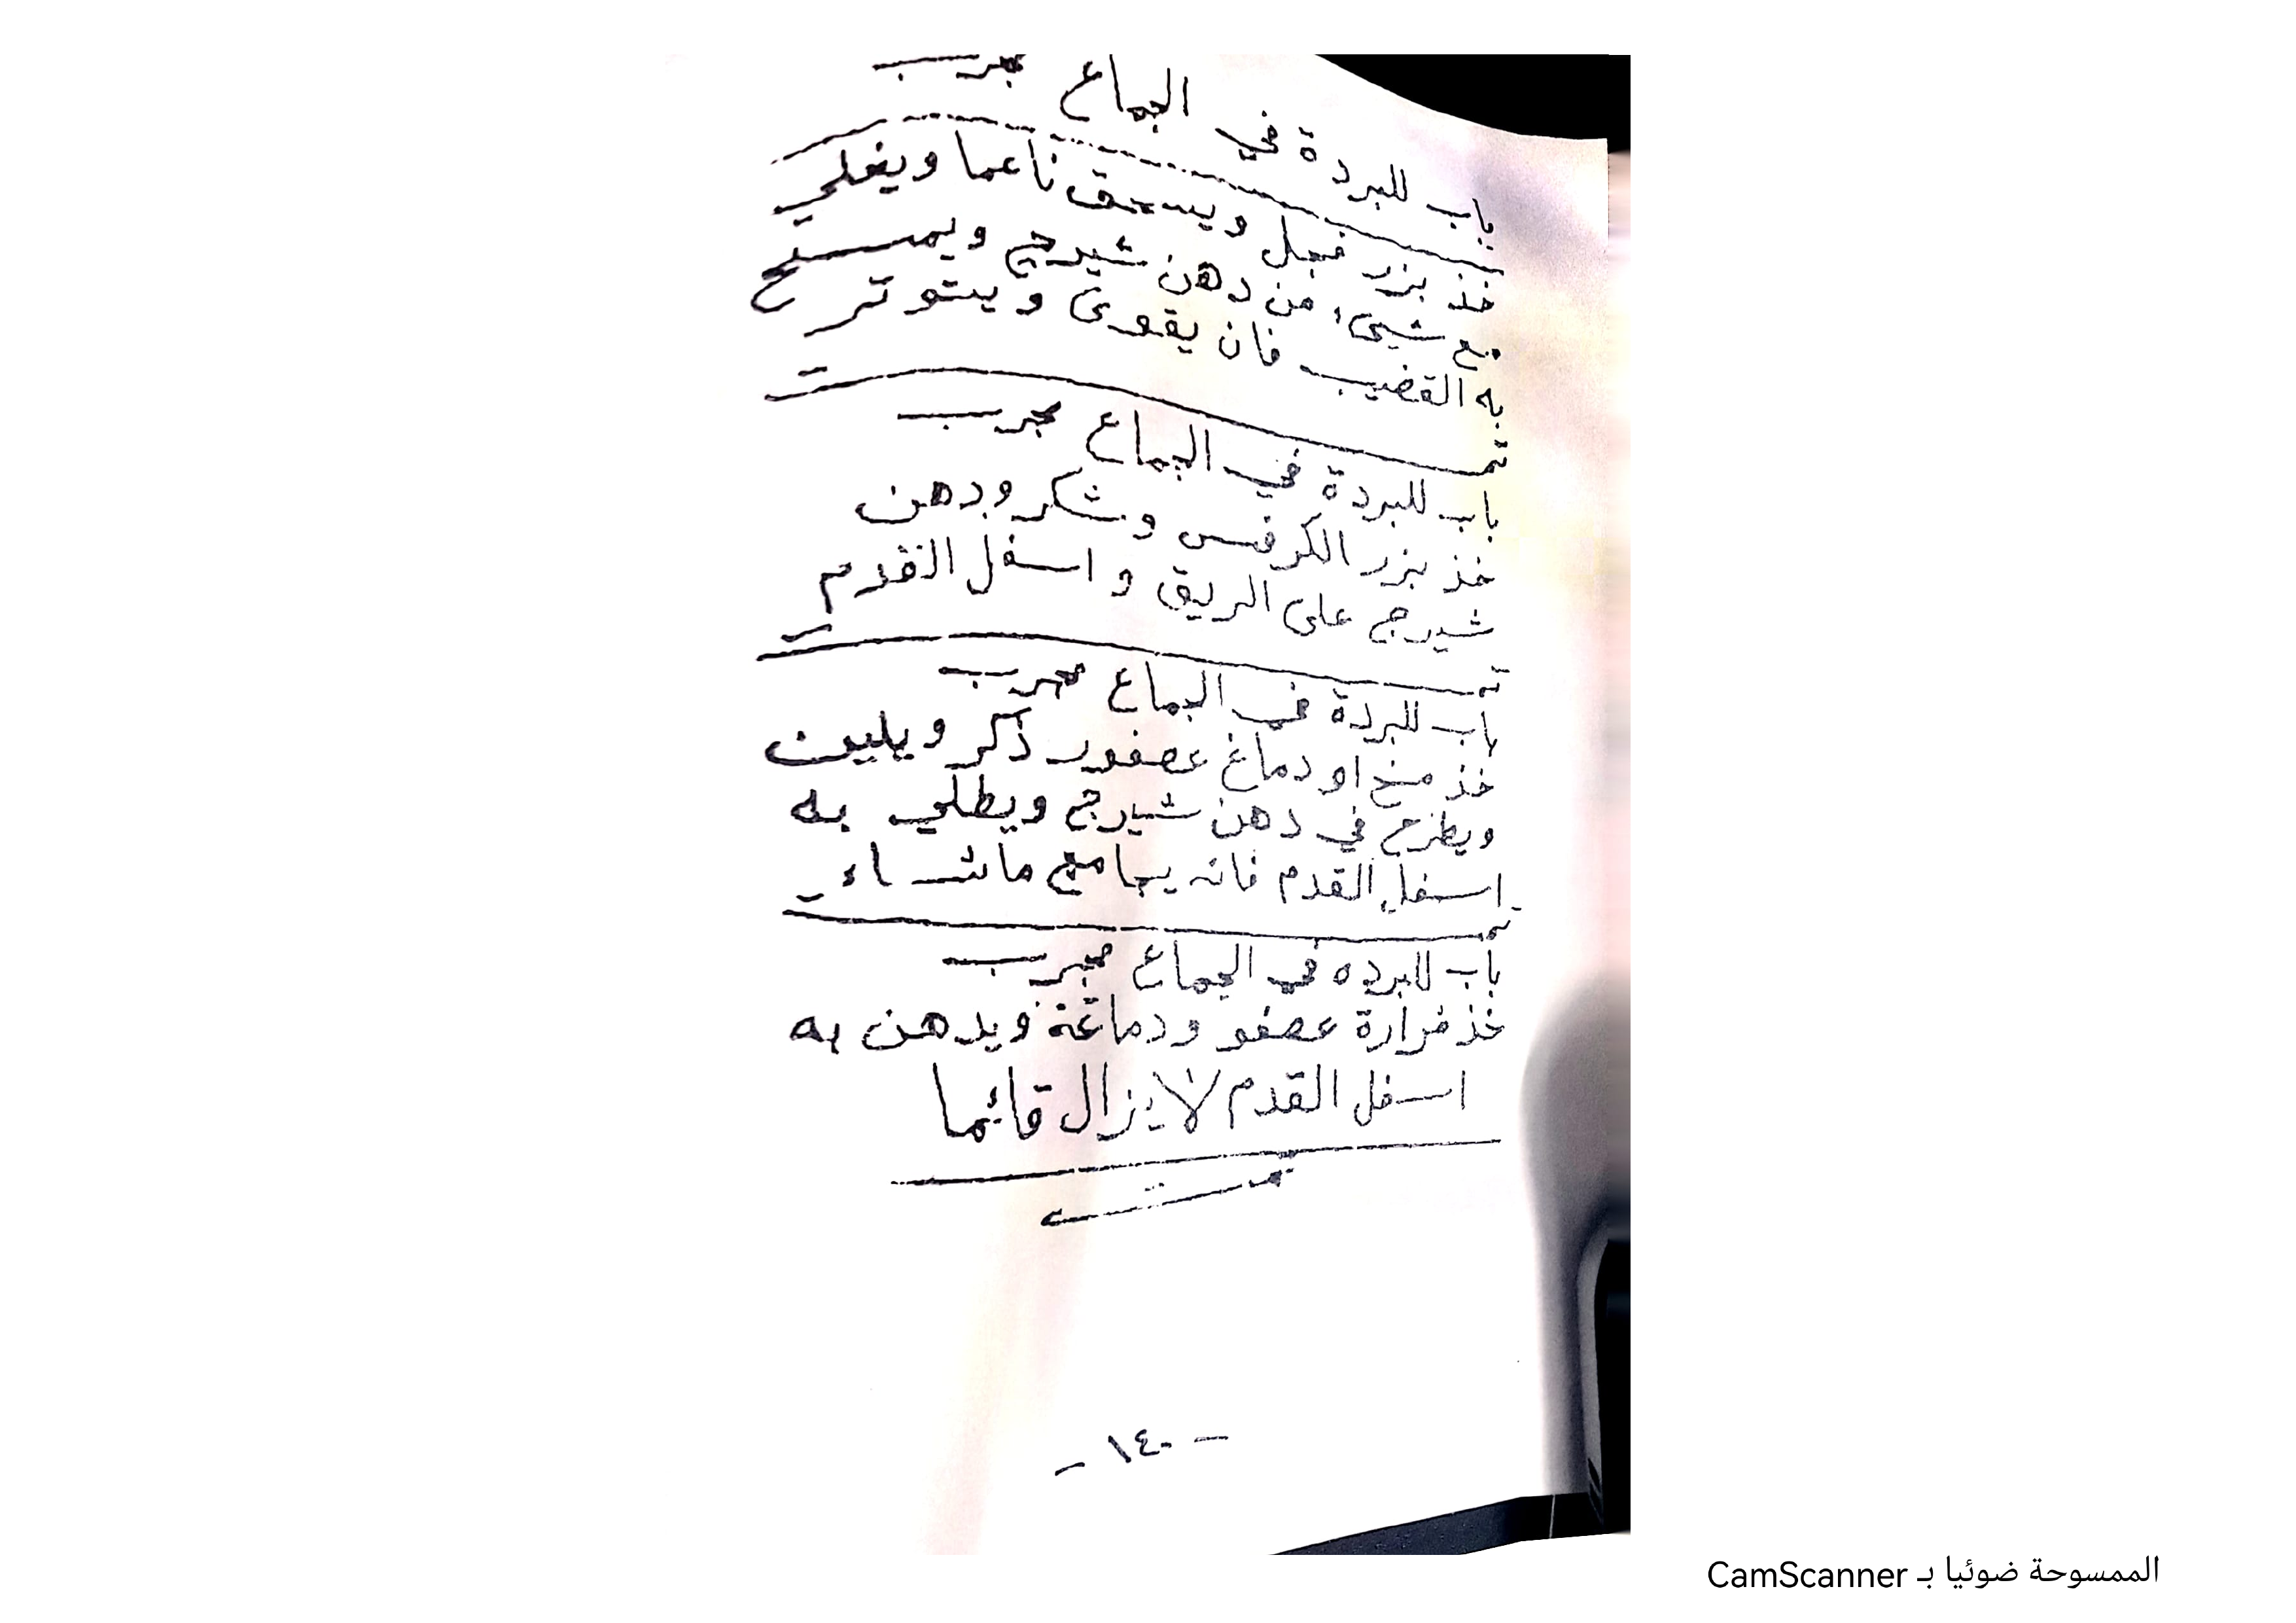 باب للبردة في الجماع مجرب
خذ بزر فجل ويسحق ناعما ويغلي
مع شيىء من دهن شيرج ويمسح
به القضيب فان يقوى ويتوتر
تمت
باب للبردة في الجماع مجرب
خذ بزر الكرفس وشكر ودهن
شيرج على الريق و اسفل القدم
تمت
باب للبردة في الجماع مجرب
خذ مخ او دماغ عصفور ذكر ويليت
ويطرح في دهن شيرج ويطلي به
اسفل القدم فانه يجامع ماشاء
تمت
باب للبرده في الجماع مجرب
خذ مرارة عصفو ودماغة ويدهن به
اسفل القدم لا يزال قائما
تمت
- ١٤٠ -
الممسوحة ضوئيا بـ CamScanner